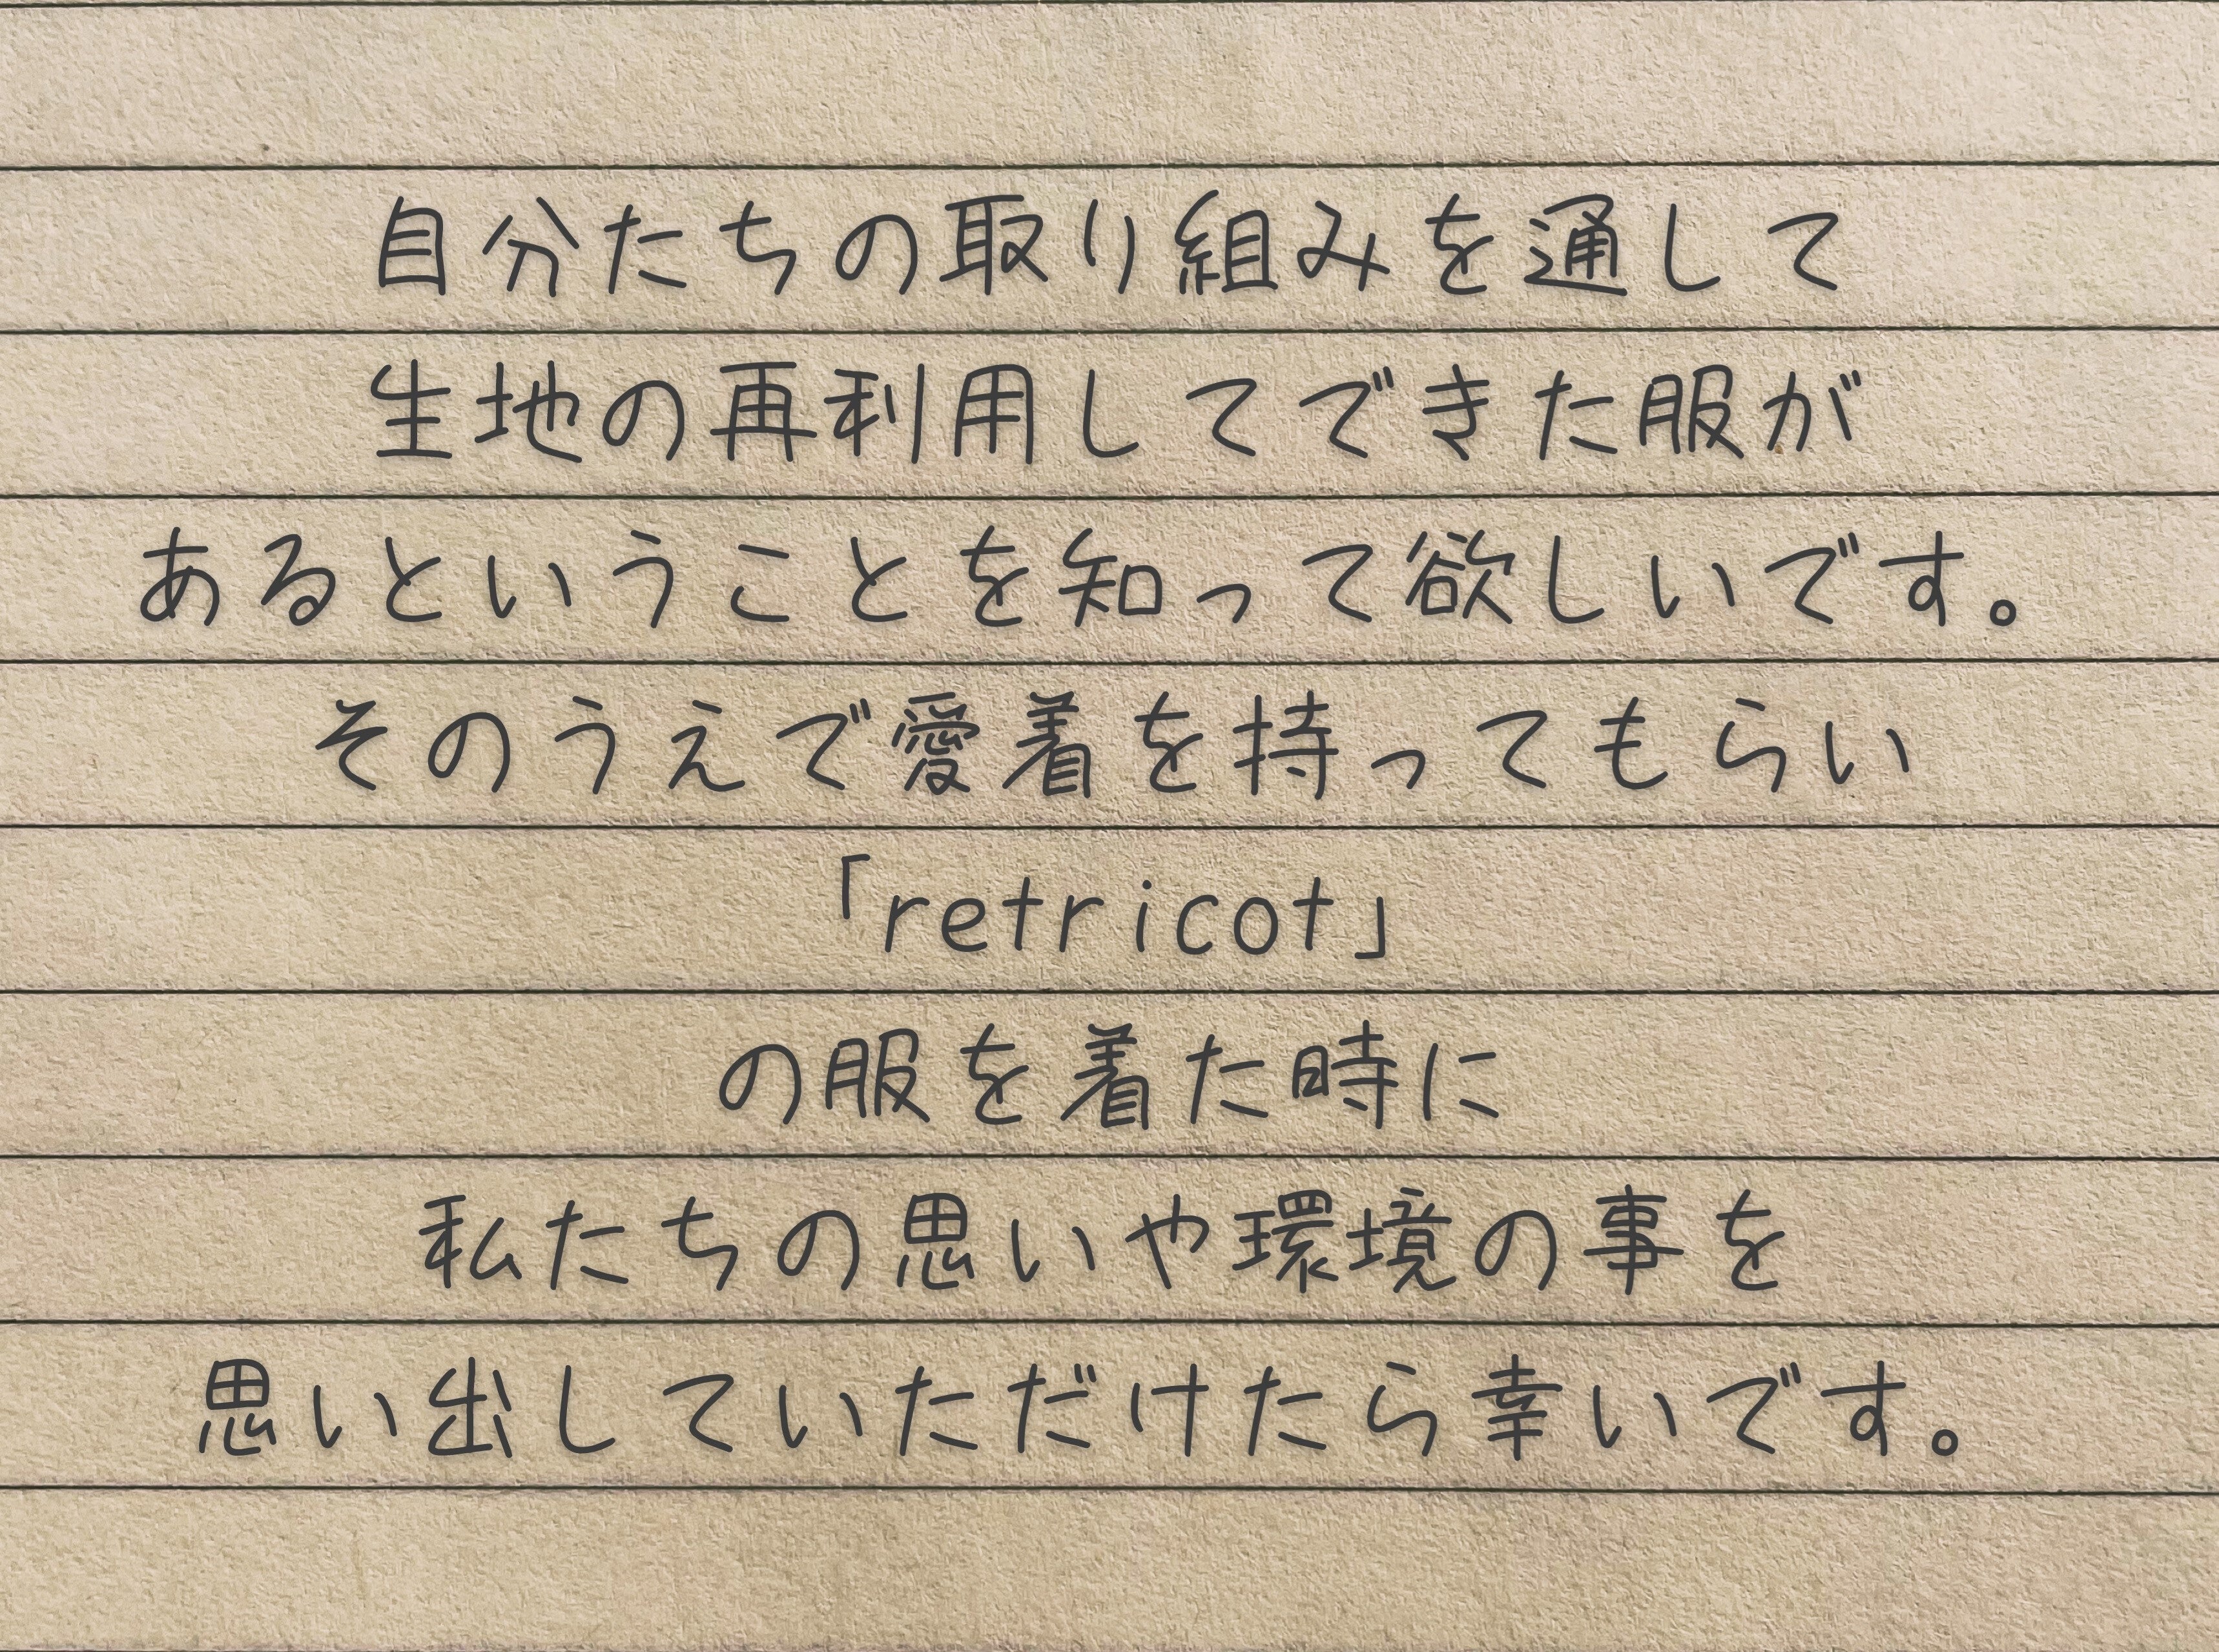 自分たちの取り組みを通して
生地の再利用してできた服が
あるということを知って欲しいです。
そのうえで愛着を持ってもらい
「retricot」
の服を着た時に
私たちの思いや環境の事を
思い出していただけたら幸いです。